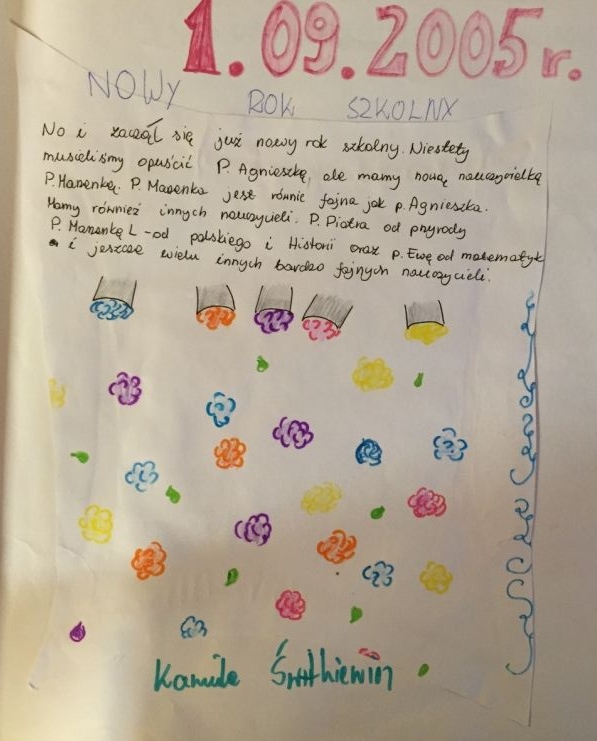 1.09.2005 r.
NOWY ROK SZKOLNY
No i zaczął się już nowy rok szkolny. Niestety
musieliśmy opuścić P. Agnieszkę, ale mamy nową nauczycielkę
P. Marzenkę. P. Marzenka jest równie fajna jak p. Agnieszka.
Mamy również innych nauczycieli. P. Piotra od przyrody
P. Marzenkę L - od polskiego i Historii oraz p. Ewę od matematyk
i jeszcze wielu innych bardzo fajnych nauczycieli.
Kamila